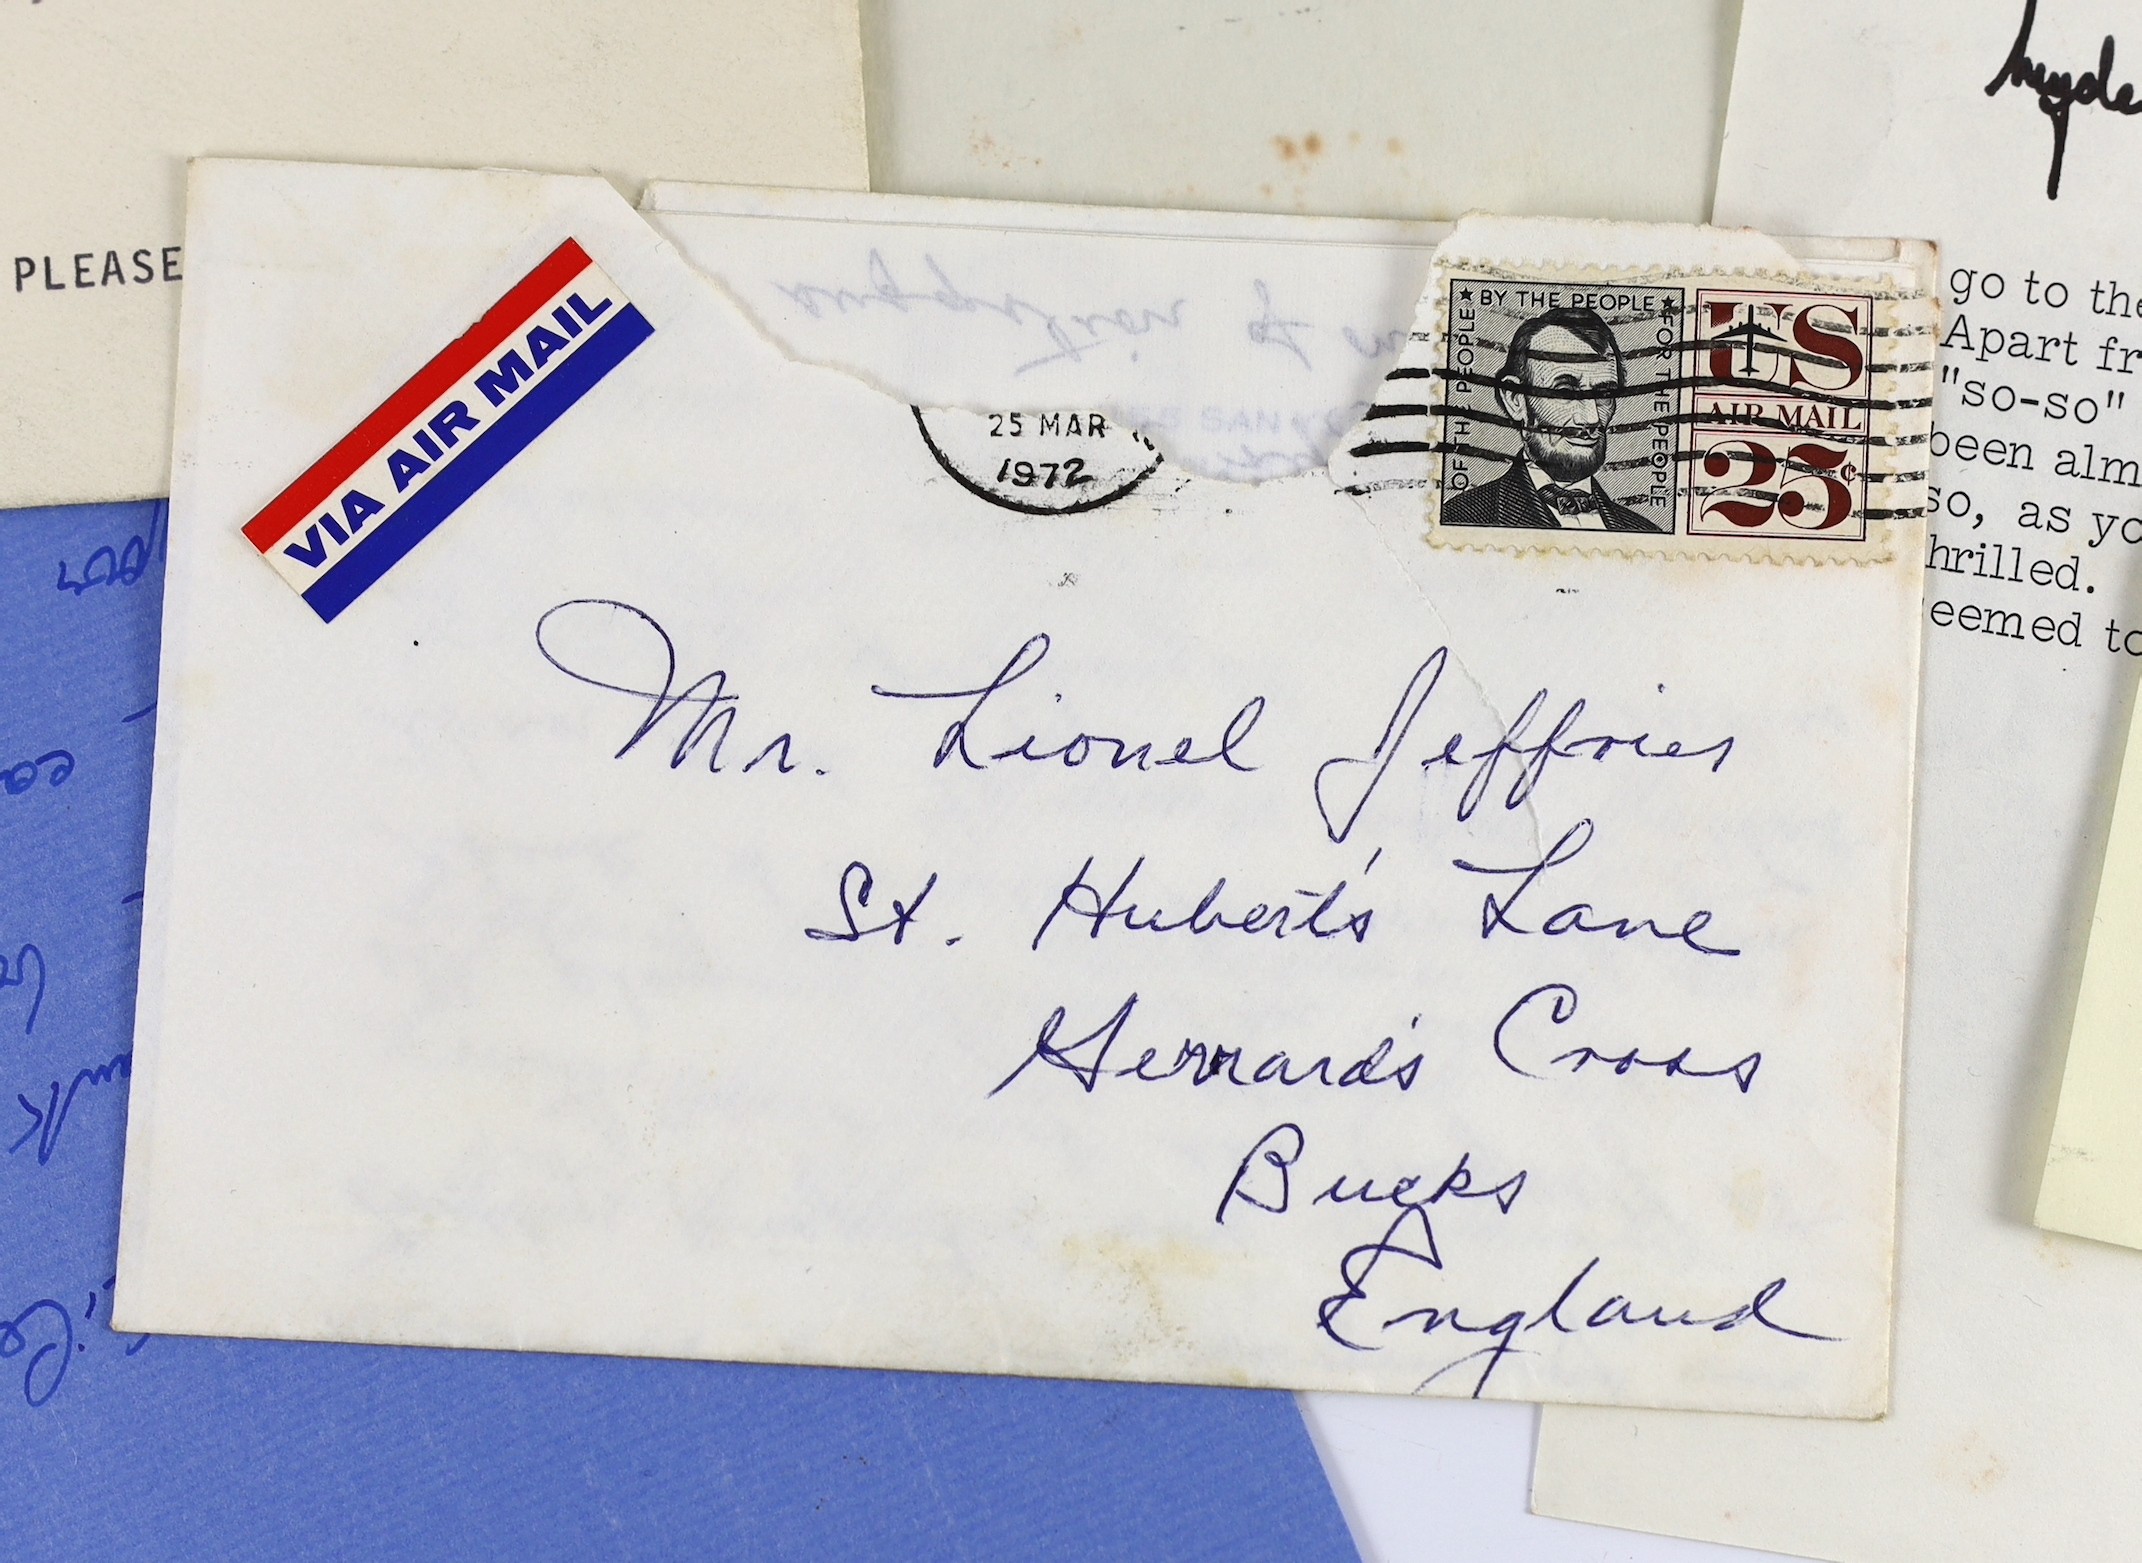 PLEASE
VIA AIR MAIL
25 MAR
1972
OF THE PEOPLE ★ BY THE PEOPLE ★ FOR THE PEOPLE
US
AIR MAIL
25¢
Mr. Lionel Jeffries
St. Hubert's Lane
Gerrard's Cross
Bucks
England
go to the
Apart fr
"so-so"
been alm
so, as yo
hrilled.
eemed to